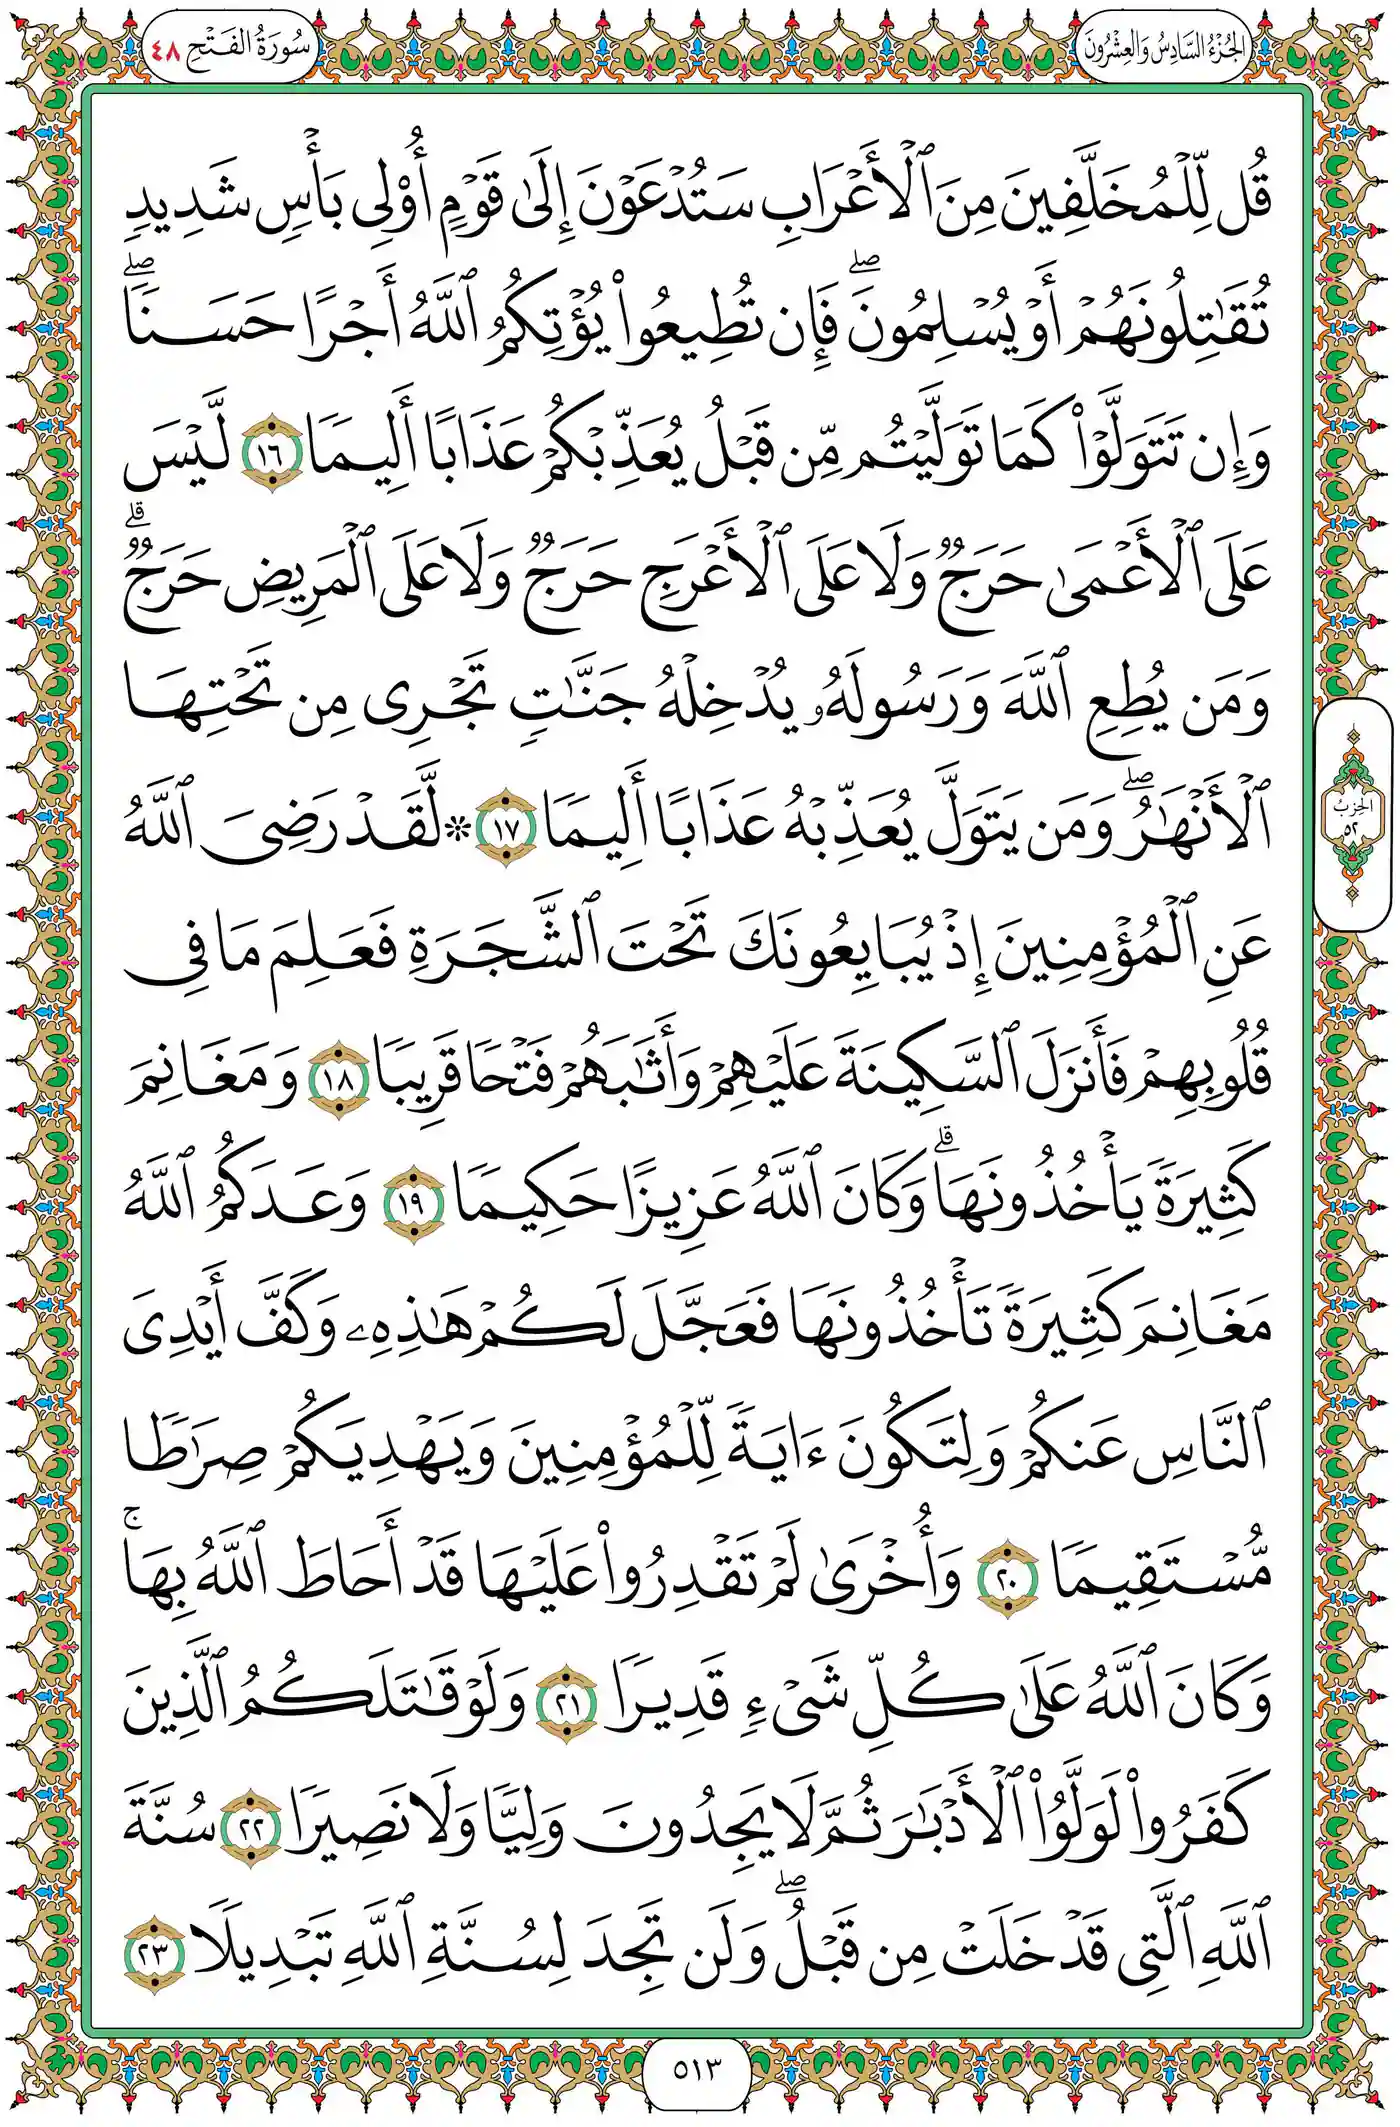 الجُزْءُ السَّادِسُ وَالعِشْرُونَ
سُورَةُ الفَتْحِ ٤٨
قُل لِّلْمُخَلَّفِينَ مِنَ ٱلْأَعْرَابِ سَتُدْعَوْنَ إِلَىٰ قَوْمٍ أُو۟لِى بَأْسٍ شَدِيدٍ
تُقَـٰتِلُونَهُمْ أَوْ يُسْلِمُونَ ۖ فَإِن تُطِيعُوا۟ يُؤْتِكُمُ ٱللَّهُ أَجْرًا حَسَنًا ۖ
وَإِن تَتَوَلَّوْا۟ كَمَا تَوَلَّيْتُم مِّن قَبْلُ يُعَذِّبْكُمْ عَذَابًا أَلِيمًا ١٦ لَّيْسَ
عَلَى ٱلْأَعْمَىٰ حَرَجٌ وَلَا عَلَى ٱلْأَعْرَجِ حَرَجٌ وَلَا عَلَى ٱلْمَرِيضِ حَرَجٌ ۗ
وَمَن يُطِعِ ٱللَّهَ وَرَسُولَهُۥ يُدْخِلْهُ جَنَّـٰتٍ تَجْرِى مِن تَحْتِهَا
ٱلْأَنْهَـٰرُ ۖ وَمَن يَتَوَلَّ يُعَذِّبْهُ عَذَابًا أَلِيمًا ١٧ * لَّقَدْ رَضِىَ ٱللَّهُ
عَنِ ٱلْمُؤْمِنِينَ إِذْ يُبَايِعُونَكَ تَحْتَ ٱلشَّجَرَةِ فَعَلِمَ مَا فِى
قُلُوبِهِمْ فَأَنزَلَ ٱلسَّكِينَةَ عَلَيْهِمْ وَأَثَـٰبَهُمْ فَتْحًا قَرِيبًا ١٨ وَمَغَانِمَ
كَثِيرَةً يَأْخُذُونَهَا ۗ وَكَانَ ٱللَّهُ عَزِيزًا حَكِيمًا ١٩ وَعَدَكُمُ ٱللَّهُ
مَغَانِمَ كَثِيرَةً تَأْخُذُونَهَا فَعَجَّلَ لَكُمْ هَـٰذِهِۦ وَكَفَّ أَيْدِىَ
ٱلنَّاسِ عَنكُمْ وَلِتَكُونَ ءَايَةً لِّلْمُؤْمِنِينَ وَيَهْدِيَكُمْ صِرَٰطًا
مُّسْتَقِيمًا ٢٠ وَأُخْرَىٰ لَمْ تَقْدِرُوا۟ عَلَيْهَا قَدْ أَحَاطَ ٱللَّهُ بِهَا ۚ
وَكَانَ ٱللَّهُ عَلَىٰ كُلِّ شَىْءٍ قَدِيرًا ٢١ وَلَوْ قَـٰتَلَكُمُ ٱلَّذِينَ
كَفَرُوا۟ لَوَلَّوُا۟ ٱلْأَدْبَـٰرَ ثُمَّ لَا يَجِدُونَ وَلِيًّا وَلَا نَصِيرًا ٢٢ سُنَّةَ
ٱللَّهِ ٱلَّتِى قَدْ خَلَتْ مِن قَبْلُ ۖ وَلَن تَجِدَ لِسُنَّةِ ٱللَّهِ تَبْدِيلًا ٢٣
الحِزْبُ
٥٢
٥١٣